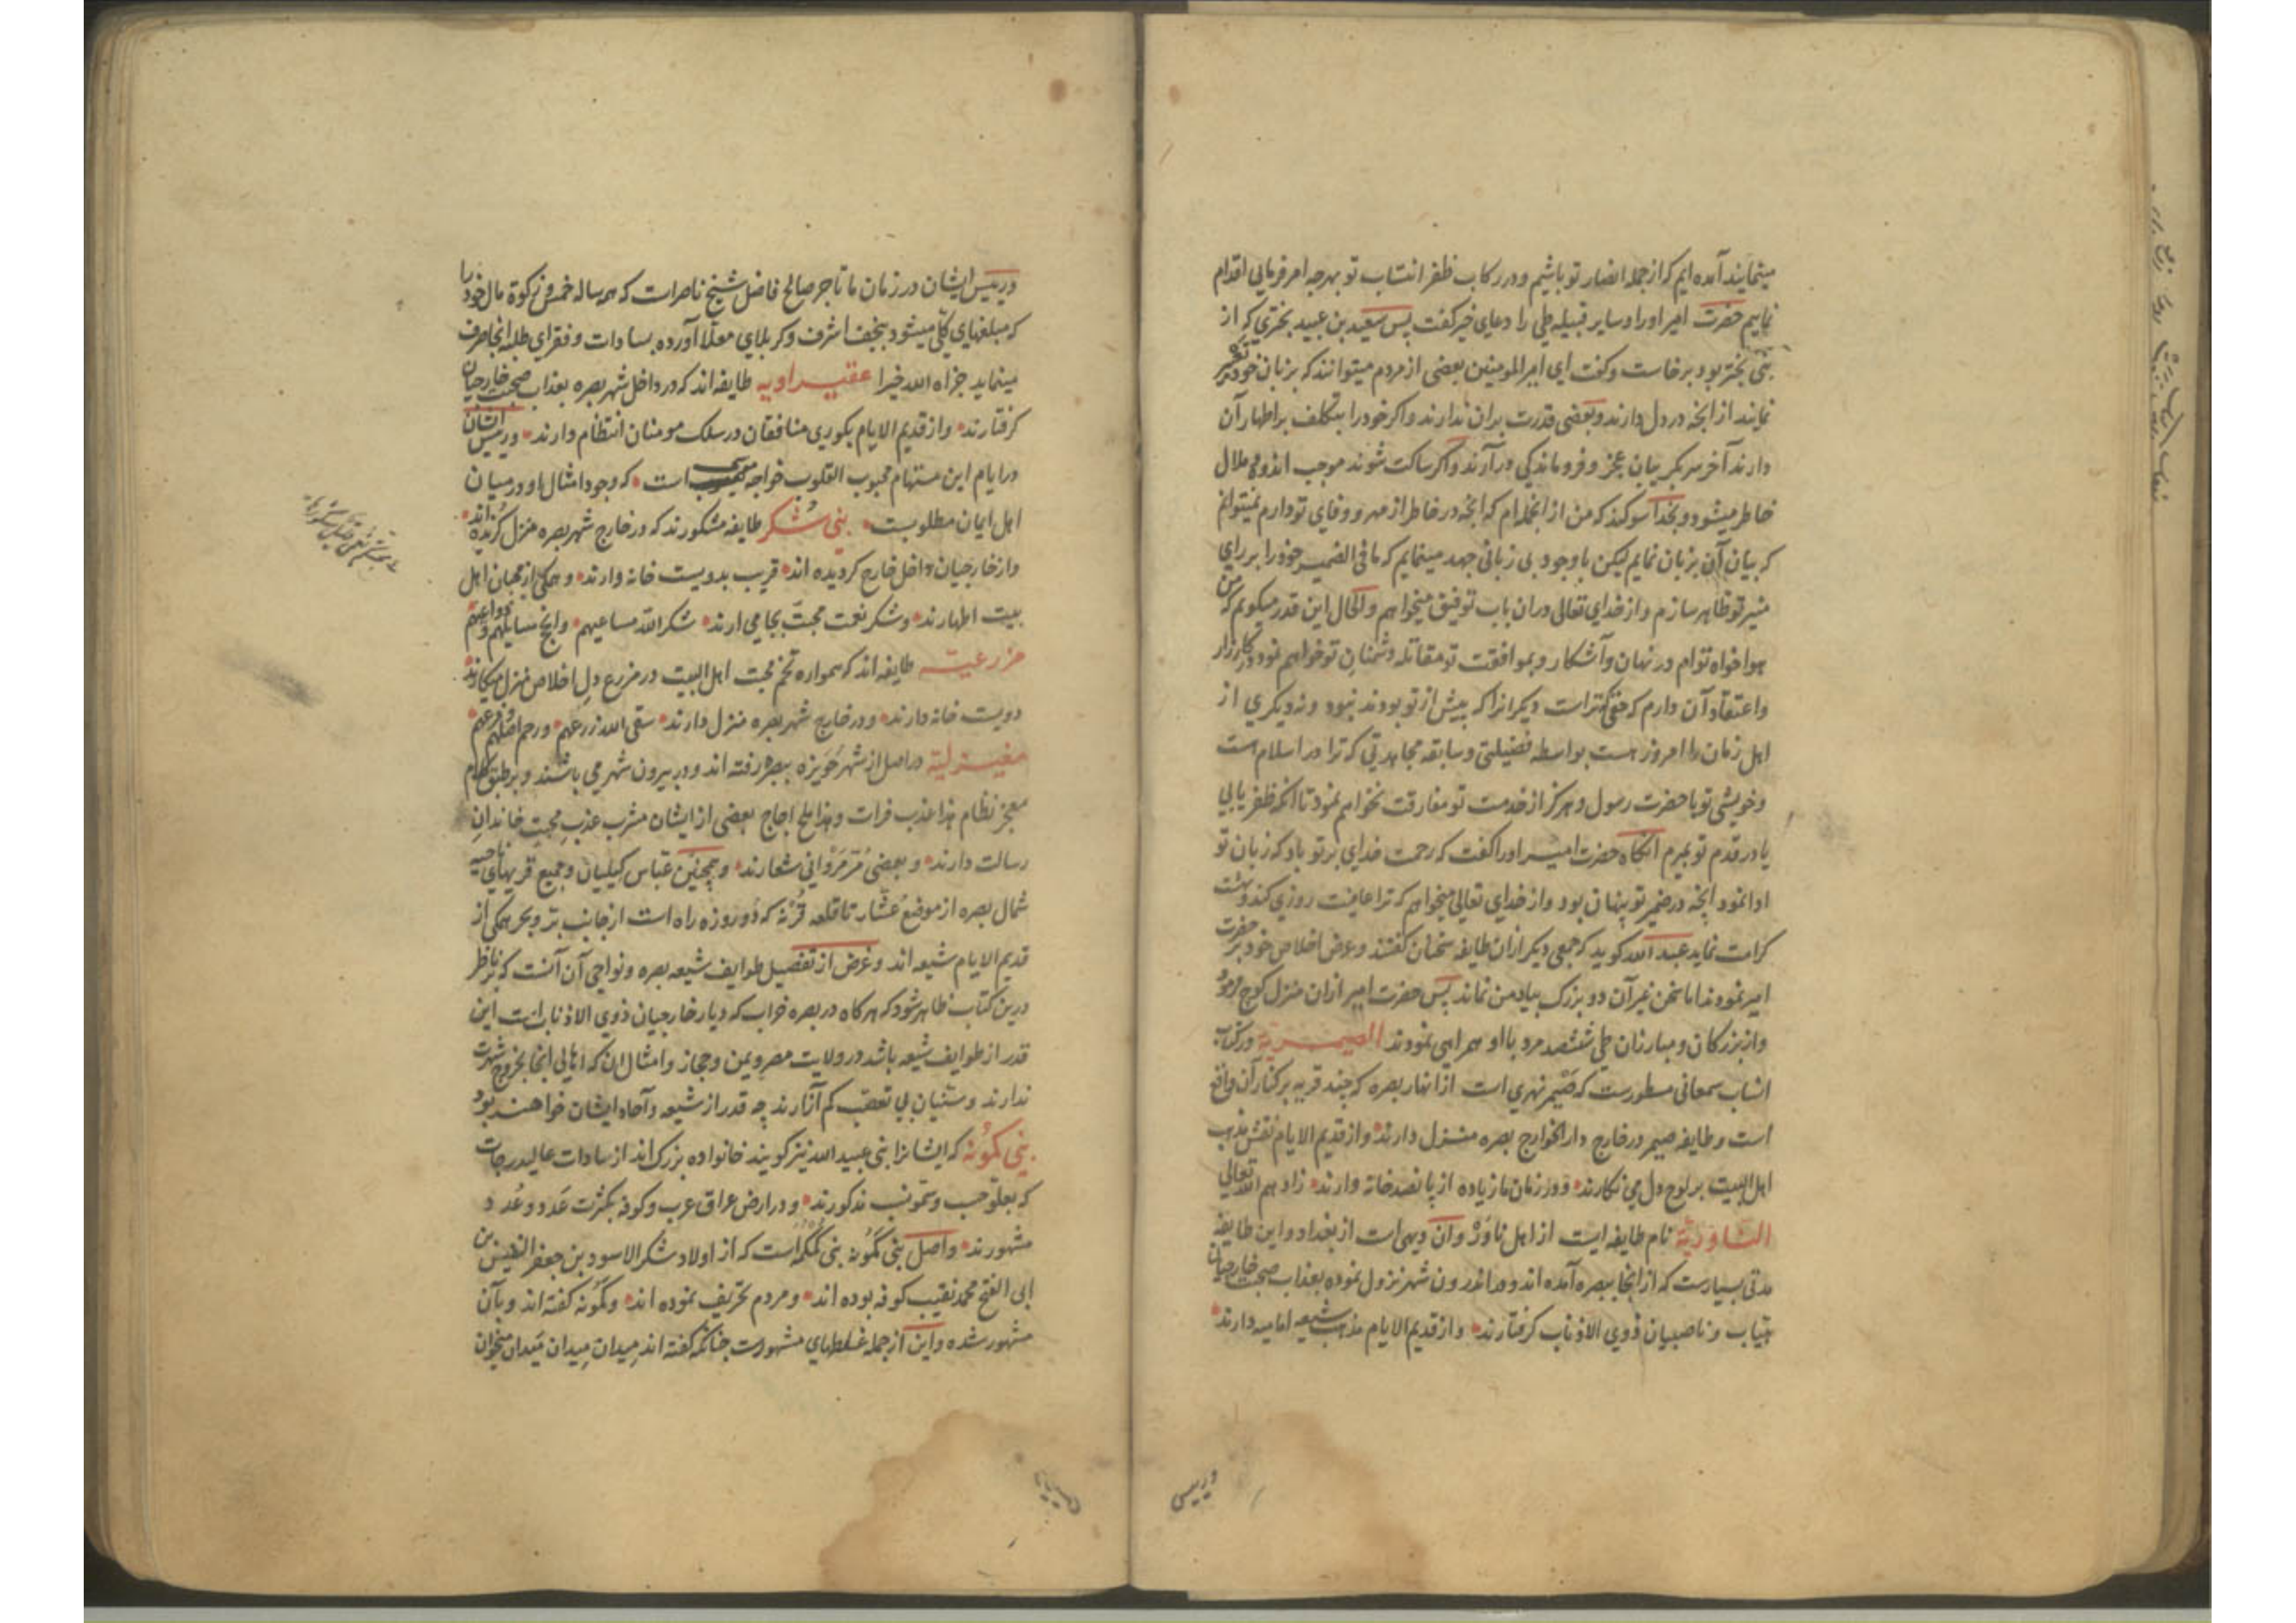 مینمایند آمده ایم که از جمله انصار تو باشیم و در رکاب ظفر انتساب تو بهرچه امر فرمایی اقدام
نماییم حضرت امیر او را و سایر قبیله طی را دعای خیر کفت پس سعید بن عبید بختری که از
بنی بختر بود برخاست و کفت ای امیر المومنین بعضی از مردم میتوانند که بزبان خود تعبیر
نمایند از انچه در دل دارند و بعضی قدرت بران ندارند و اکر خود را بتکلف بر اظهار آن
دارند آخر سر بکریبان عجز و فروماندکی درآرند و اکر ساکت شوند موجب اندوه و ملال
خاطر میشود و بخدا سوکند که من از انجمله ام که انچه در خاطر از مهر و وفای تو دارم نمیتوانم
که بیان آن بزبان نمایم لیکن با وجود بی زبانی جهد مینمایم که ما فی الضمیر خود را بر رای
منیر تو ظاهر سازم و از خدای تعالی دران باب توفیق میخواهم و الحال این قدر میکویم که من
هواخواه توام در نهان و آشکار و بموافقت تو مقاتله دشمنان تو خواهم نمود در کارزار
و اعتقاد آن دارم که حقی که تراست دیکرانرا که پیش از تو بودند نبود و نه دیکری از
اهل زمان را امروز هست بواسطه فضیلتی و سابقه مجاهدتی که ترا در اسلام هست
و خویشی تو با حضرت رسول و هرکز از خدمت تو مفارقت نخواهم نمود تا انکه ظفر یابی
یا در قدم تو بمیرم انکاه حضرت امیر او را کفت که رحمت خدای بر تو باد که زبان تو
ادا نمود انچه در ضمیر تو پنهان بود و از خدای تعالی میخواهم که ترا عافیت روزی کند و بهشت
کرامت نماید عبد الله کوید که جمعی دیکر ازان طایفه سخنان کفتند و عرض اخلاص خود بر حضرت
امیر نمودند اما سخن غیر آن دو بزرک بیاد من نماند پس حضرت امیر ازان منزل کوچ فرمود
و از بزرکان و مبارزان طی ششصد مرد با او همراهی نمودند الصیمریه در کتاب
انساب سمعانی مسطورست که صیمر نهری است از انهار بصره که چند قریه بر کنار آن واقع
است و طایفه صیمر در خارج دار الخوارج بصره منزل دارند و از قدیم الایام نقش مذهب
اهل البیت بر لوح دل می نکارند و در زمان ما زیاده از پانصد خانه دارند زادهم الله تعالی
الساوریه نام طایفه ایست از اهل ناوَر وان دیهی است از بغداد و این طایفه
مدتی بسیارست که از انجا ببصره آمده اند و در اندرون شهر نزول نموده بعذاب صحبت خارجیان
و ناصبیان ذوی الاذناب کرفتارند و از قدیم الایام مذهب شیعه امامیه دارند
و رییس
و رییس ایشان در زمان ما تاجر صالح فاضل شیخ ناصر است که هر ساله خمس و زکوة مال خود را
که مبلغهای کلی میشود بنجف اشرف و کربلای معلا آورده بسادات و فقرای طلبه انجا صرف
مینماید جزاه الله خیرا عقیراویه طایفه اند که در داخل شهر بصره بعذاب صحبت خارجیان
کرفتارند و از قدیم الایام بکوری منافقان در سلک مومنان انتظام دارند و رییس ایشان
در ایام این مستهام محبوب القلوب خواجه است که وجود امثال او در میان
اهل ایمان مطلوبست بنی شُکر طایفه مشکورند که در خارج شهر بصره منزل کزیده اند
و از خارجیان داخل خارج کردیده اند قریب بدویست خانه دارند و همکی از محبان اهل
بیت اطهارند و شکر نعمت محبت بجا می ارند شکر الله مساعیهم و انجح مسایلهم و دواعیهم
مزرعیه طایفه اند که همواره تخم محبت اهل البیت در مزرع دل اخلاص منزل میکارند
دویست خانه دارند و در خارج شهر بصره منزل دارند سقی الله زرعهم و رحم اصلهم و فرعهم
مغیزلیه در اصل از شهر حویزه ببصره رفته اند و در بیرون شهر می باشند و بر طبق کلام
معجز نظام هذا عذب فرات و هذا ملح اجاج بعضی از ایشان مشرب عذب محبت خاندان
رسالت دارند و بعضی مُر مَرْوانی شعارند و همچنین عباس کیلیان و جمیع قریهای ناحیه
شمال بصره از موضع عشار تا قلعه قُرنه که دو روزه راه است از جانب بر و بحر همکی از
قدیم الایام شیعه اند و غرض از تفصیل طوایف شیعه بصره و نواحی آن آنست که بر ناظر
درین کتاب ظاهر شود که هرکاه در بصره خراب که دیار خارجیان ذوی الاذناب است این
قدر از طوایف شیعه باشد در ولایت مصر و یمن و حجاز و امثال ان که اهالی انجا بخروج شهرت
ندارند و سنیان بی تعصب کم آزارند چه قدر از شیعه و آحاد ایشان خواهند بود
بنی کمونه که ایشانرا بنی عبید الله نیز کویند خانواده بزرک اند از سادات عالیدرجات
که بعلو حسب و سمو نسب مذکورند و در ارض عراق عرب و کوفه بکثرت عَدد و عُدد
مشهورند و اصل بنی کَمُونه بنی کمکمه است که از اولاد شکر الاسود بن جعفر النفیس بن
ابی الفتح محمد نقیب کوفه بوده اند و مردم تحریف نموده اند و کمونه کفته اند و بآن
مشهور شده و این از جمله غلطهای مشهورست چنانکه کفته اند میدان میدان مَیدان میخوان